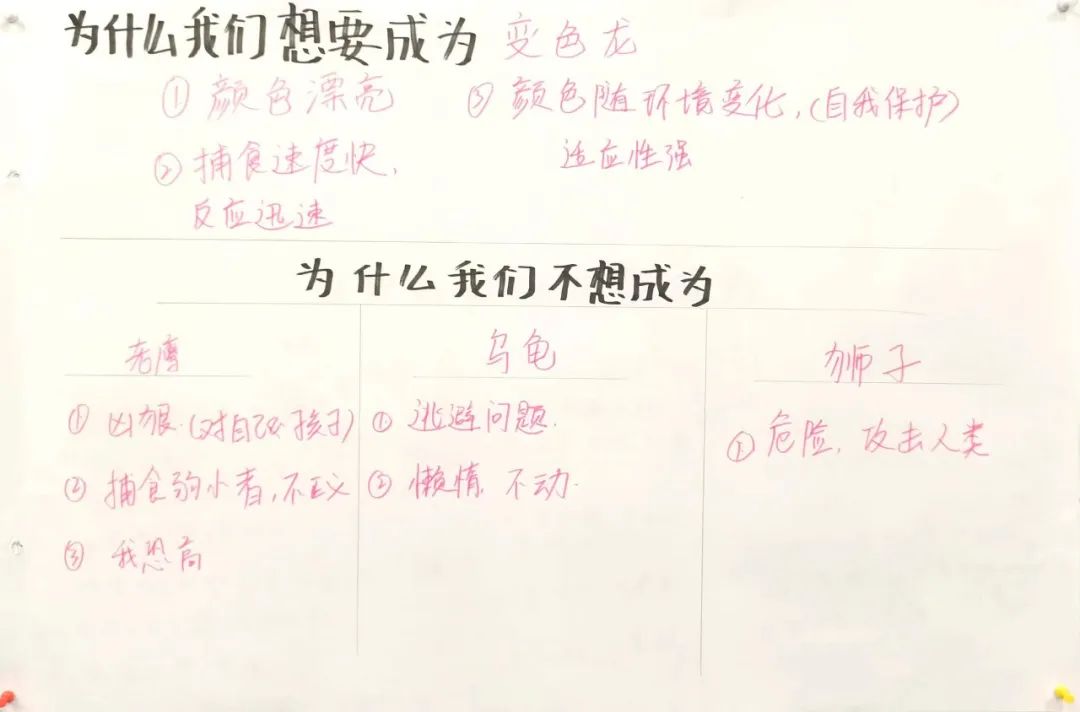 为什么我们想要成为 变色龙
① 颜色漂亮
② 捕食速度快,
反应迅速
③ 颜色随环境变化,(自我保护)
适应性强
为什么我们不想成为
老鹰
① 凶狠.(对自己孩子)
② 捕食弱小者,不正义
③ 我恐高
乌龟
① 逃避问题.
② 懒惰 不动.
狮子
① 危险, 攻击人类